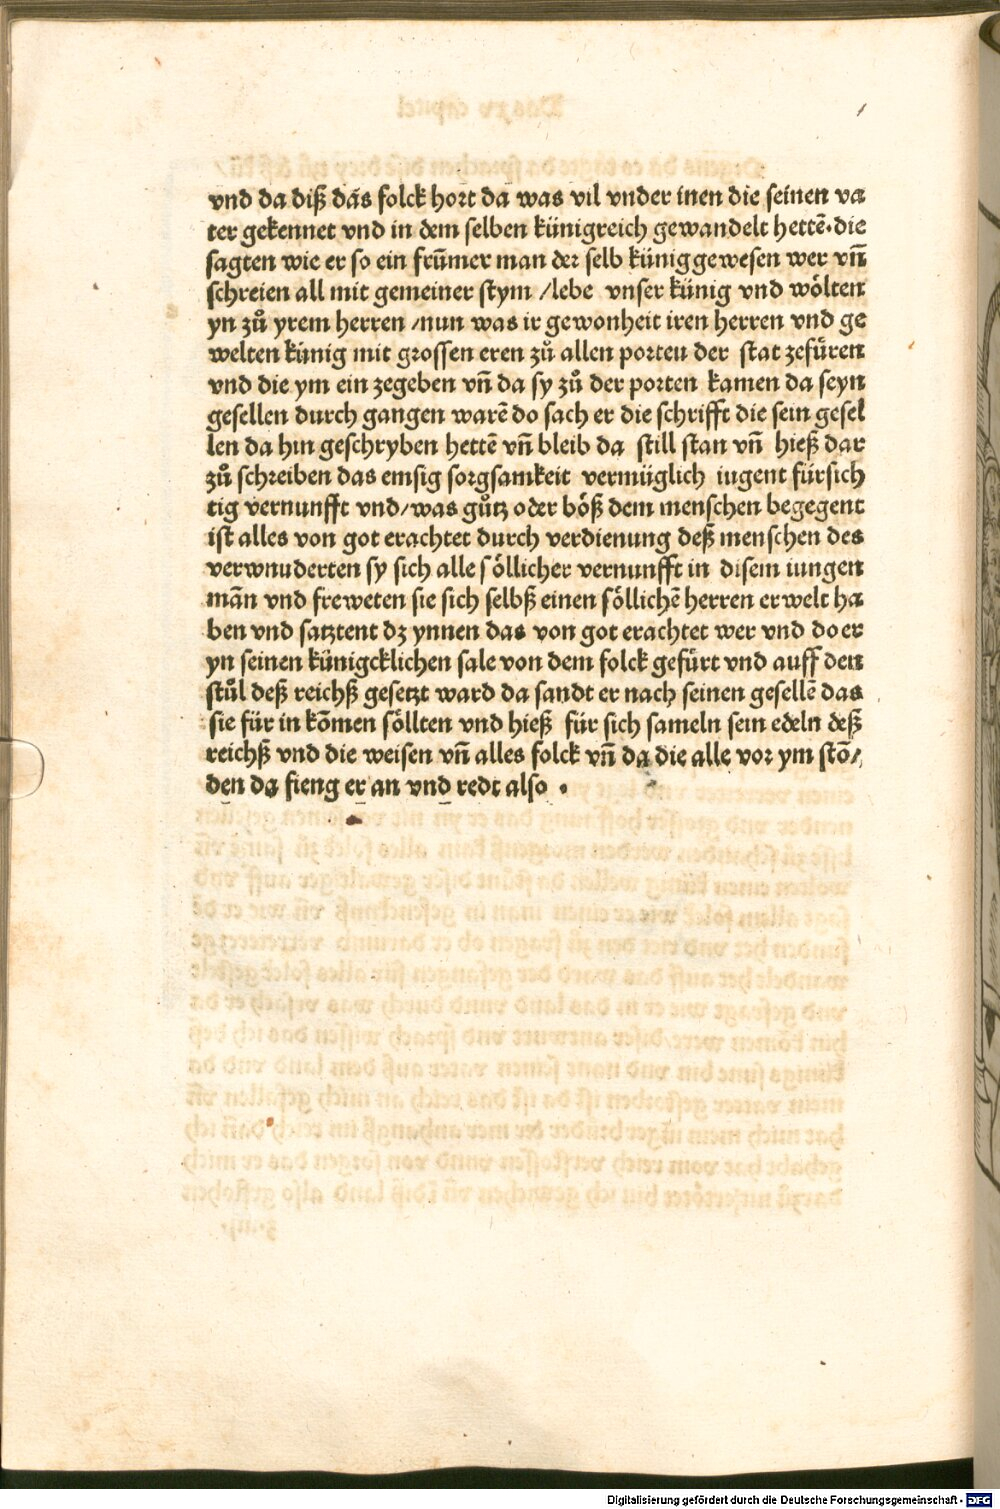 vnd da diß das folck hort da was vil vnder inen die seinen va
ter gekennet vnd in dem selben künigreich gewandelt hettē·die
sagten wie er so ein frūmer man der selb künig gewesen wer vn̄
schreien all mit gemeiner stym /lebe vnser künig vnd wölten
yn zů yrem herren /nun was ir gewonheit iren herren vnd ge
welten künig mit grossen eren zů allen porten der stat zefüren
vnd die ym ein zegeben vn̄ da sy zů der porten kamen da seyn
gesellen durch gangen warē do sach er die schrifft die sein gesel
len da hin geschryben hettē vn̄ bleib da still stan vn̄ hieß dar
zů schreiben das emsig sorgsamkeit vermüglich iugent fürsich
tig vernunfft vnd/was gůtz oder böß dem menschen begegent
ist alles von got erachtet durch verdienung deß menschen des
verwnuderten sy sich alle söllicher vernunfft in disem iungen
mān vnd freweten sie sich selbß einen söllichē herren erwelt ha
ben vnd satztent dz ynnen das von got erachtet wer vnd do er
yn seinen künigcklichen sale von dem folck gefürt vnd auff den
stůl deß reichß gesetzt ward da sandt er nach seinen gesellē das
sie für in kōmen söllten vnd hieß für sich sameln sein edeln deß
reichß vnd die weisen vn̄ alles folck vn̄ da die alle vor ym stō/
den da fieng er an vnd redt also ·
Digitalisierung gefördert durch die Deutsche Forschungsgemeinschaft - DFG